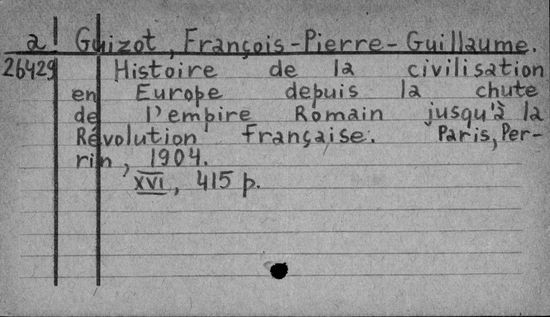 a Guizot, François-Pierre-Guillaume.
26429 Histoire de la civilisation
en Europe depuis la chute
de l'empire Romain jusqu'à la
Révolution Française. Paris, Per-
rin, 1904.
XVI, 415 p.